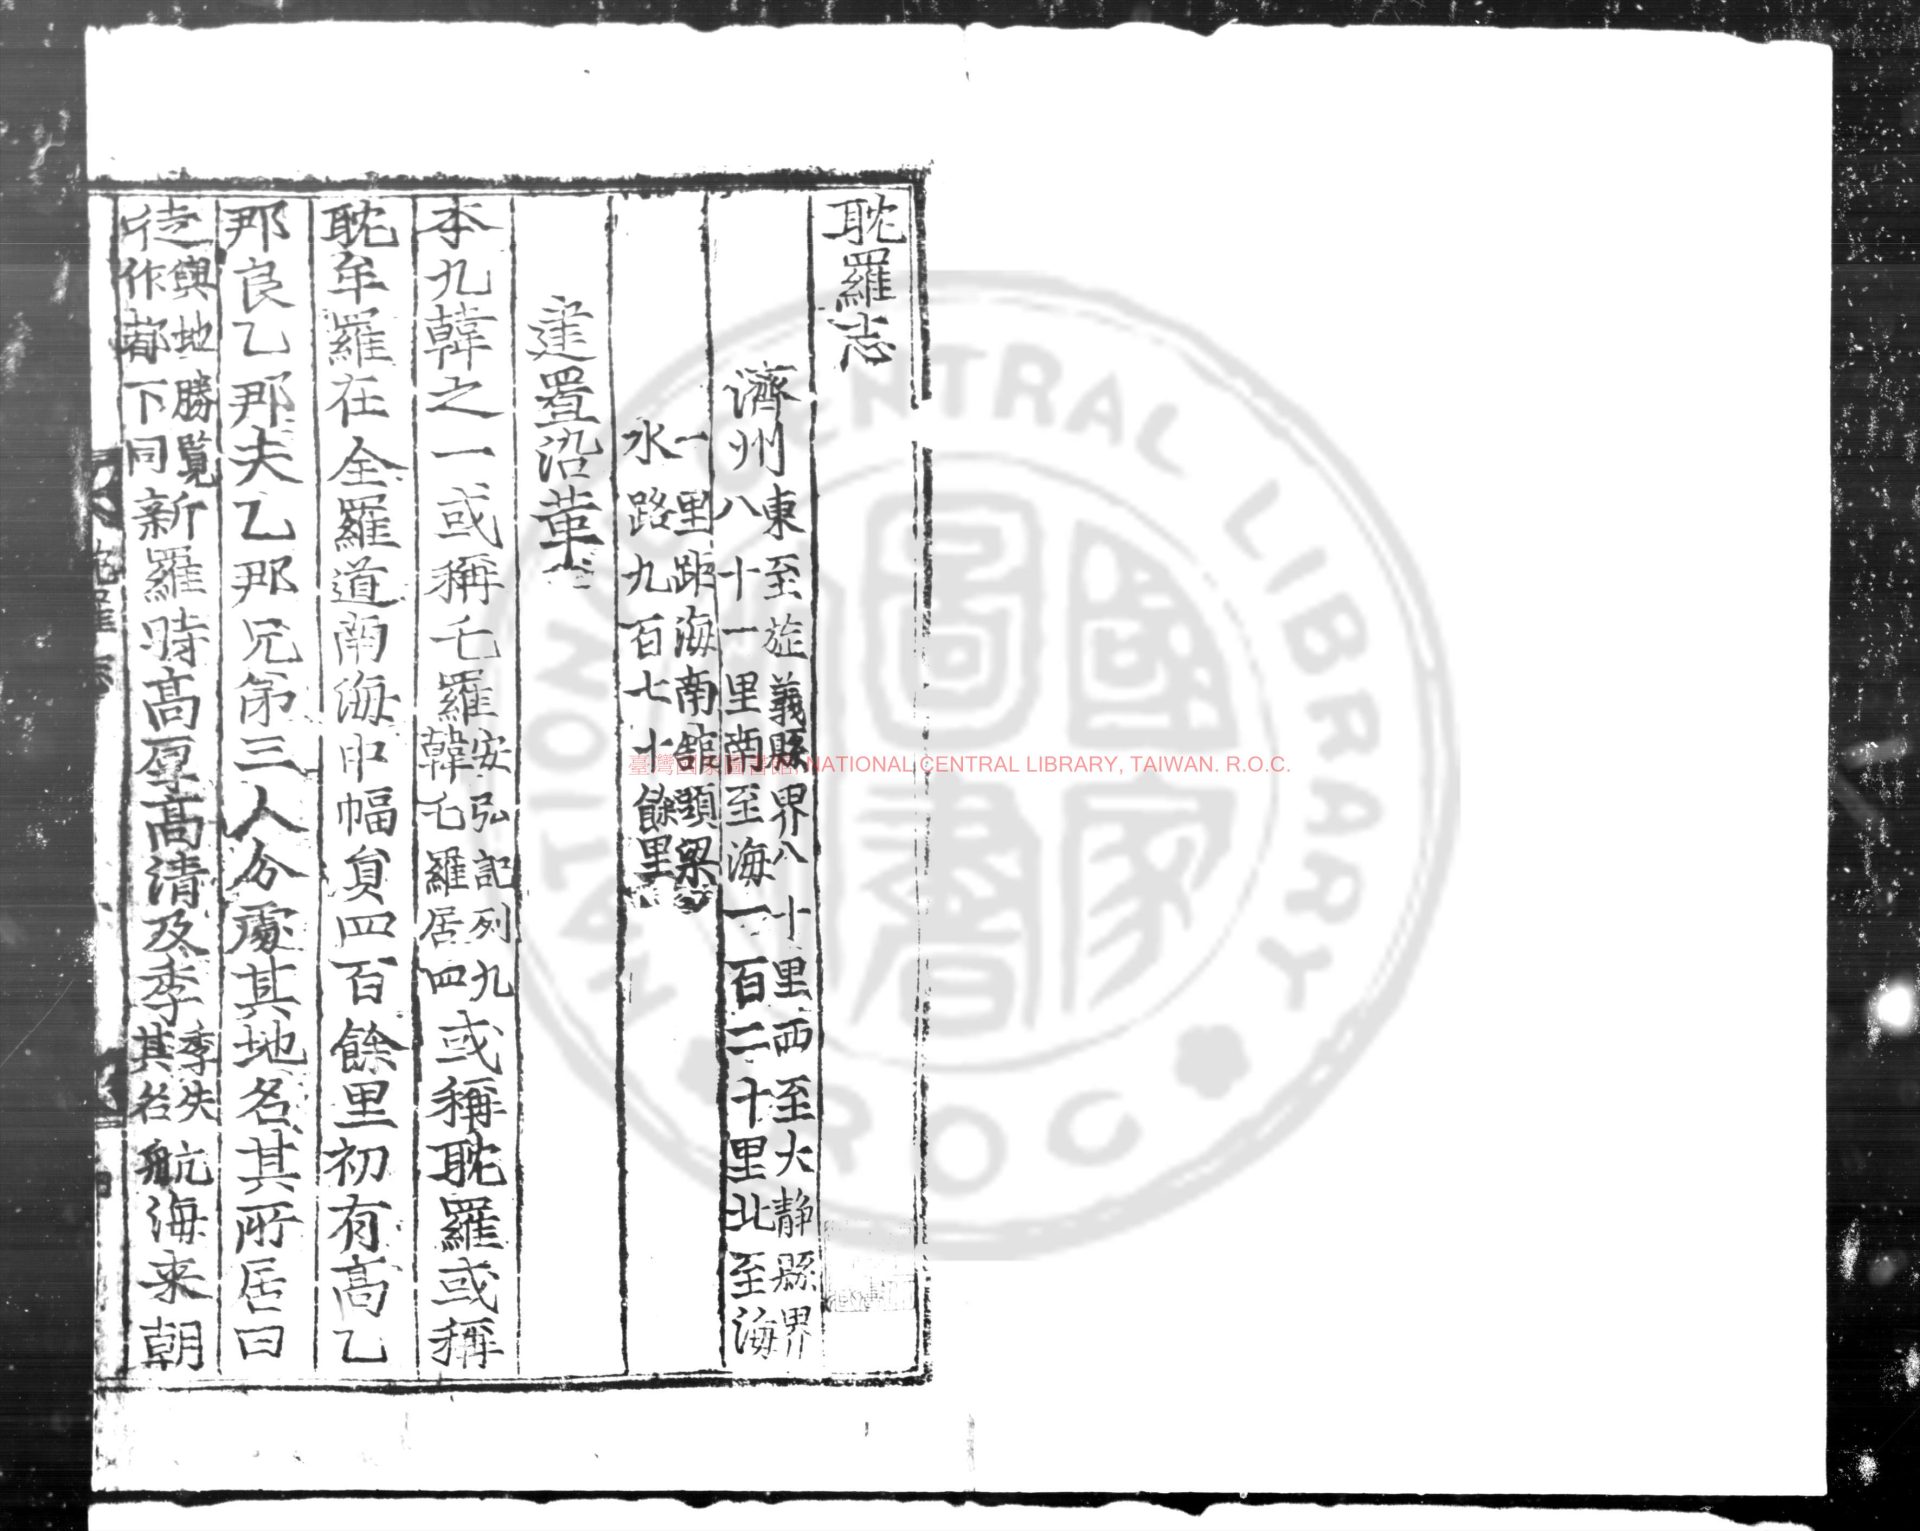 耽羅志
濟州東至旌義縣界八十里西至大静縣界
八十一里南至海一百二十里北至海
一里距海南舘頭梁
水路九百七十餘里
建置沿革
本九韓之一或稱乇羅安弘記列九韓乇羅居四或稱耽羅或稱
耽牟羅在全羅道南海中幅員四百餘里初有高乙
那良乙那夫乙那兄弟三人分處其地名其所居曰
徒輿地勝覽作都下同新羅時高厚高清及季季失其名航海来朝
耽羅志
臺灣國家圖書館, NATIONAL CENTRAL LIBRARY, TAIWAN. R.O.C.
NATIONAL CENTRAL LIBRARY R.O.C.
國家圖書